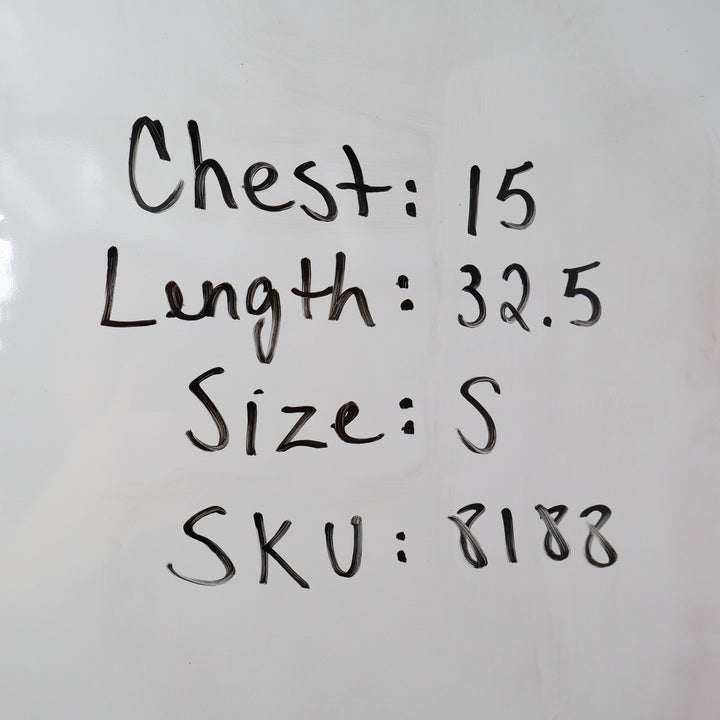 Chest: 15
Length: 32.5
Size: S
SKU: 8188